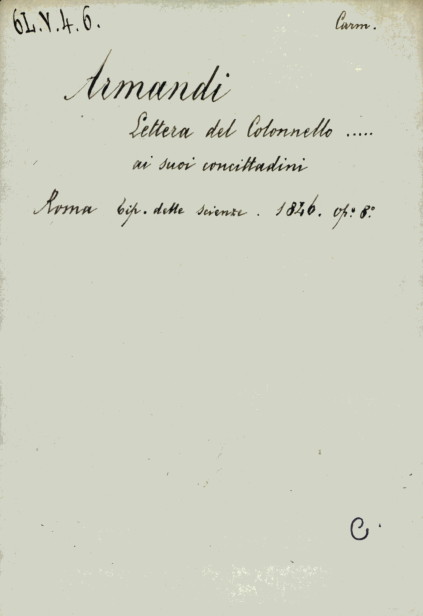 6L.V.4.6.
Carm.
Armandi
Lettera del Colonnello .....
ai suoi concittadini
Roma tip. delle scienze. 1846. op.º 8.º
C.